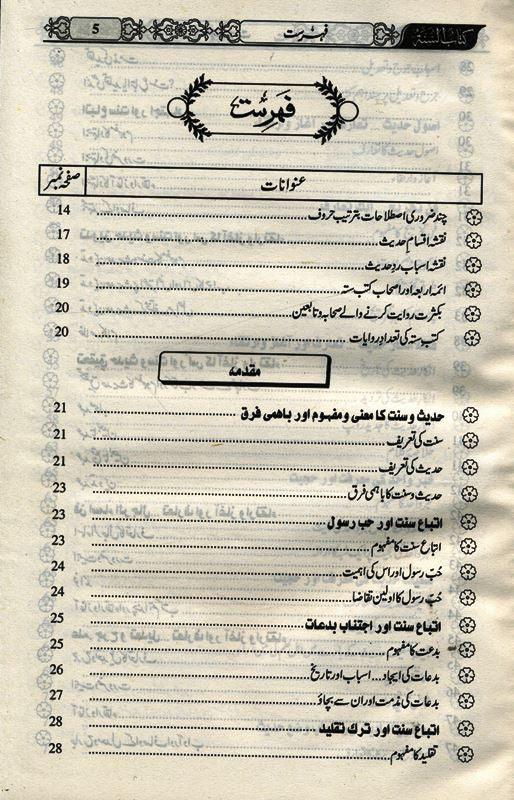 كتاب السنة فہرست 5
فہرست
عنوانات صفحہ نمبر
چند ضروری اصطلاحات بترتیب حروف 14
نقشہ اقسام حدیث 17
نقشہ اسباب ردِ حدیث 18
ائمہ اربعہ اور اصحاب کتب ستہ 19
بکثرت روایت کرنے والے صحابہ و تابعین 20
کتب ستہ کی تعداد روایات 20
مقدمہ
حدیث و سنت کا معنی و مفہوم اور باہمی فرق 21
سنت کی تعریف 21
حدیث کی تعریف 21
حدیث و سنت کا باہمی فرق 23
اتباع سنت اور حب رسول 23
اتباع سنت کا مفہوم 23
حُب رسول اور اس کی اہمیت 24
حُب رسول کا اولین تقاضا 24
اتباع سنت اور اجتناب بدعات 25
بدعت کا مفہوم 25
بدعات کی ایجاد... اسباب اور تاریخ 26
بدعات کی مذمت اور ان سے بچاؤ 27
اتباع سنت اور ترک تقلید 28
تقلید کا مفہوم 28